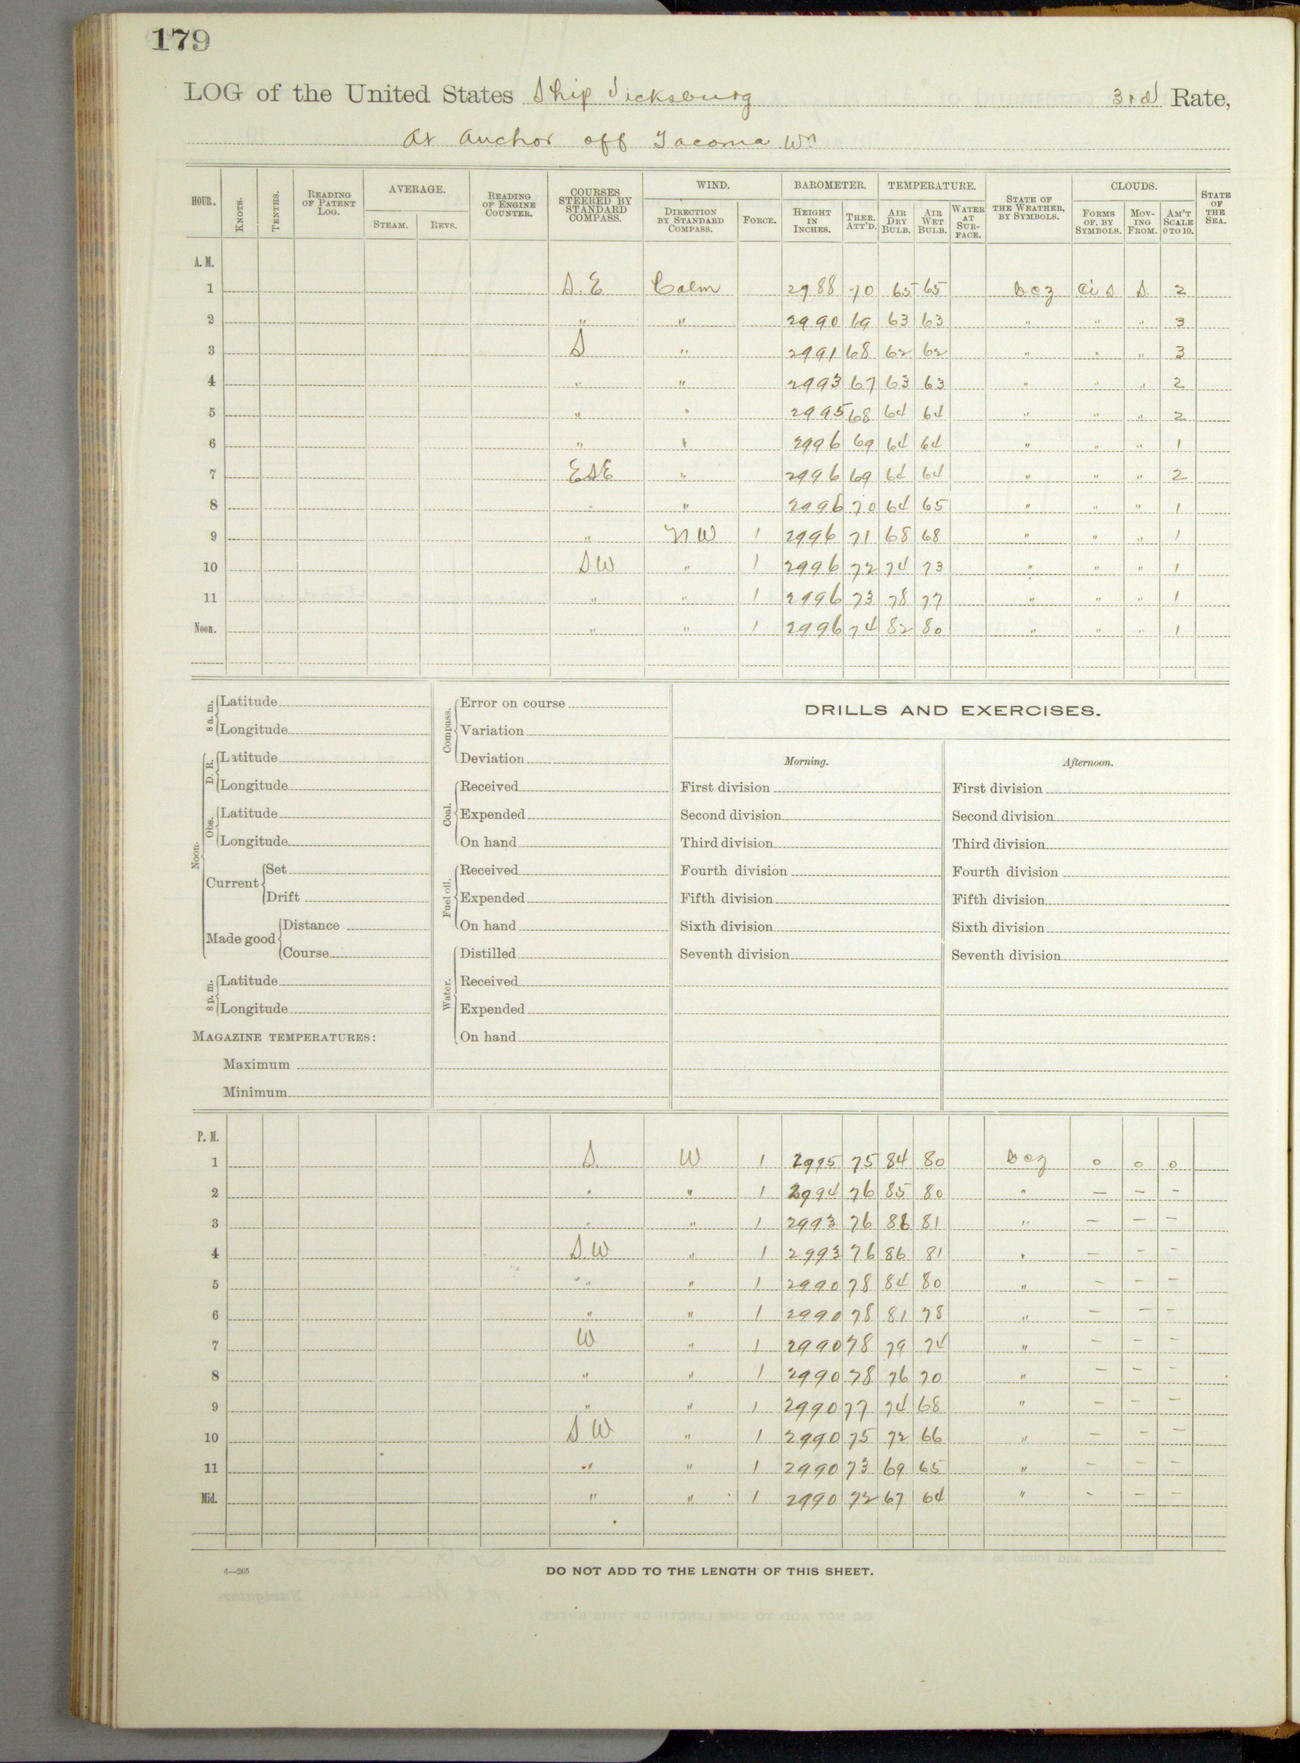 179
LOG of the United States Ship Vicksburg 3rd Rate,
At Anchor off Tacoma Wn
HOUR. KNOTS. TENTHS. READING OF PATENT LOG. AVERAGE. STEAM. REVS. READING OF ENGINE COUNTER. COURSES STEERED BY STANDARD COMPASS. WIND. DIRECTION BY STANDARD COMPASS. FORCE. BAROMETER. HEIGHT IN INCHES. THER. ATT'D. TEMPERATURE. AIR DRY BULB. AIR WET BULB. WATER AT SURFACE. STATE OF THE WEATHER, BY SYMBOLS. CLOUDS. FORMS OF, BY SYMBOLS. MOVING FROM. AM'T SCALE 0 TO 10. STATE OF THE SEA.
A. M.
1 S. E Calm 2988 70 65 65 bcz Ci S S. 2
2 " " 2990 69 63 63 " " " 3
3 S " 2991 68 62 62 " " " 3
4 " " 2993 67 63 63 " " " 2
5 " " 2995 68 64 64 " " " 2
6 " " 2996 69 64 64 " " " 1
7 ESE " 2996 69 64 64 " " " 2
8 " " 2996 70 64 65 " " " 1
9 " NW 1 2996 71 68 68 " " " 1
10 SW " 1 2996 72 74 73 " " " 1
11 " " 1 2996 73 78 77 " " " 1
Noon. " " 1 2996 74 82 80 " " " 1
8 a. m. Latitude
Longitude
Noon. D. R. Latitude
Longitude
Obs. Latitude
Longitude
Current Set
Drift
Made good Distance
Course
8 p. m. Latitude
Longitude
MAGAZINE TEMPERATURES:
Maximum
Minimum
Compass. Error on course
Variation
Deviation
Coal. Received
Expended
On hand
Fuel oil. Received
Expended
On hand
Water. Distilled
Received
Expended
On hand
DRILLS AND EXERCISES.
Morning. Afternoon.
First division First division
Second division Second division
Third division Third division
Fourth division Fourth division
Fifth division Fifth division
Sixth division Sixth division
Seventh division Seventh division
P. M.
1 S. W 1 2995 75 84 80 bcz 0 0 0
2 " " 1 2994 76 85 80 " — — —
3 " " 1 2993 76 86 81 " — — —
4 S.W " 1 2993 76 86 81 " — — —
5 " " 1 2990 78 84 80 " — — —
6 " " 1 2990 78 81 78 " — — —
7 W " 1 2990 78 79 74 " — — —
8 " " 1 2990 78 76 70 " — — —
9 " " 1 2990 77 74 68 " — — —
10 S W " 1 2990 75 72 66 " — — —
11 " " 1 2990 73 69 65 " — — —
Mid. " " 1 2990 72 67 64 " — — —
4—265 DO NOT ADD TO THE LENGTH OF THIS SHEET.